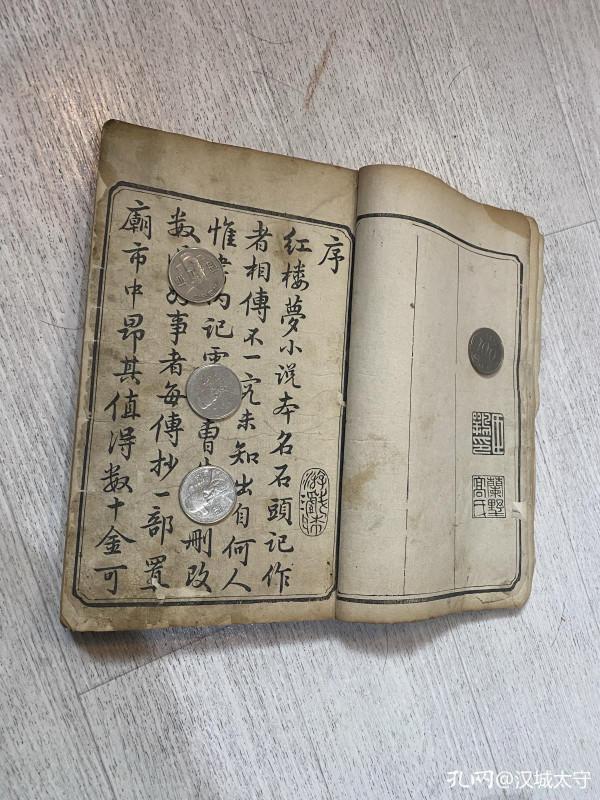 100
序
红楼夢小说本名石頭記作
者相傳不一究未知出自何人
惟内記曹删改
数事者每傳抄一部置
廟市中昂其值得数十金可
孔网@汉城太守